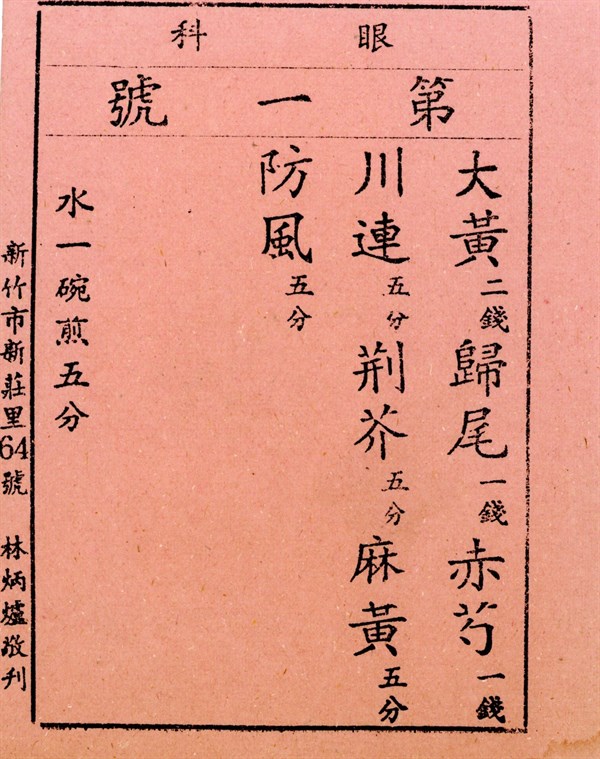 眼科
第一號
大黃二錢歸尾一錢赤芍一錢
川連五分荆芥五分麻黃五分
防風五分
水一碗煎五分
新竹市新莊里64號 林炳爐敬刊